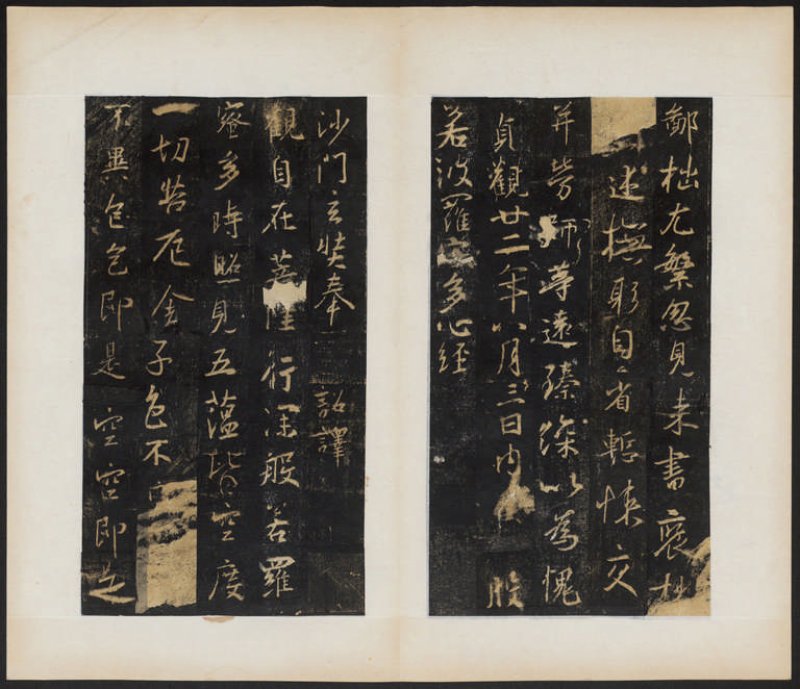 鄙拙尤繁忽見來書褒
述撫躬自省慙悚交
并勞師等遠臻深以為愧
貞觀廿二年八月三日內 般
若波羅蜜多心經
沙門玄奘奉 詔譯
觀自在菩薩行深般若羅
蜜多時照見五蘊皆空度
一切苦厄舍子色不
不異色色即是空空即是